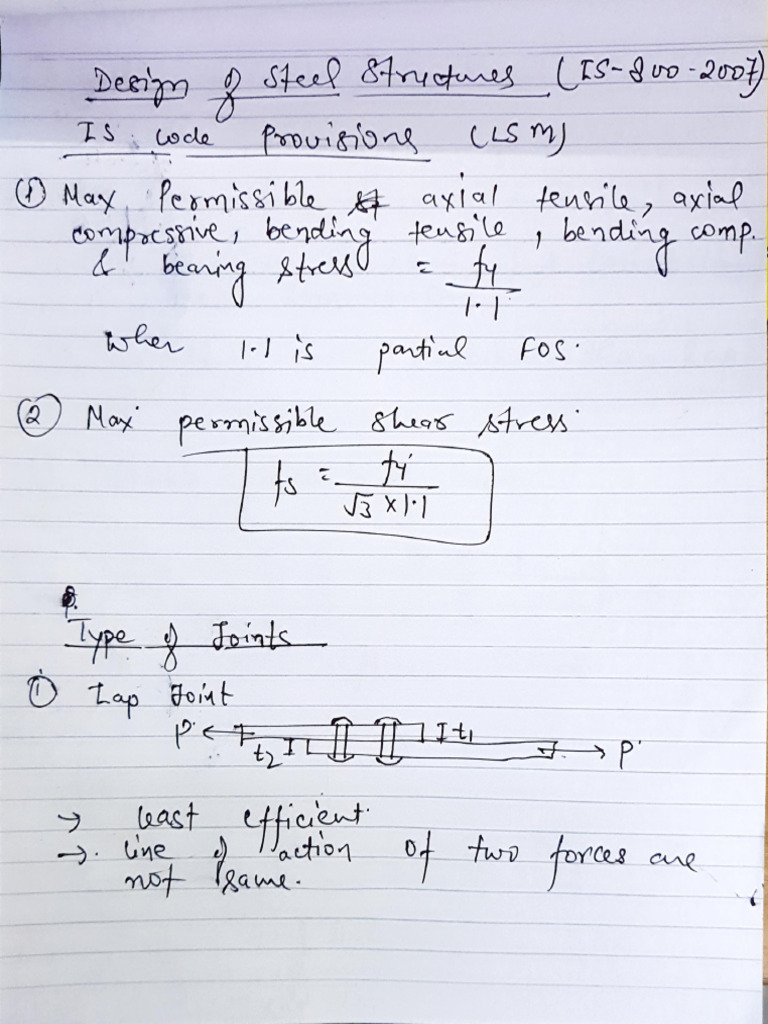 Design of Steel Structures (IS-800-2007)
IS code Provisions (LSM)
① Max Permissible axial tensile, axial
compressive, bending tensile, bending comp.
& bearing stress = fy/1.1
When 1.1 is partial FOS.
② Max permissible shear stress
fs = fy/√3 x 1.1
Type of Joints
① Lap Joint
P ← t1
t2 → P
→ least efficient.
→ line of action of two forces are
not same.